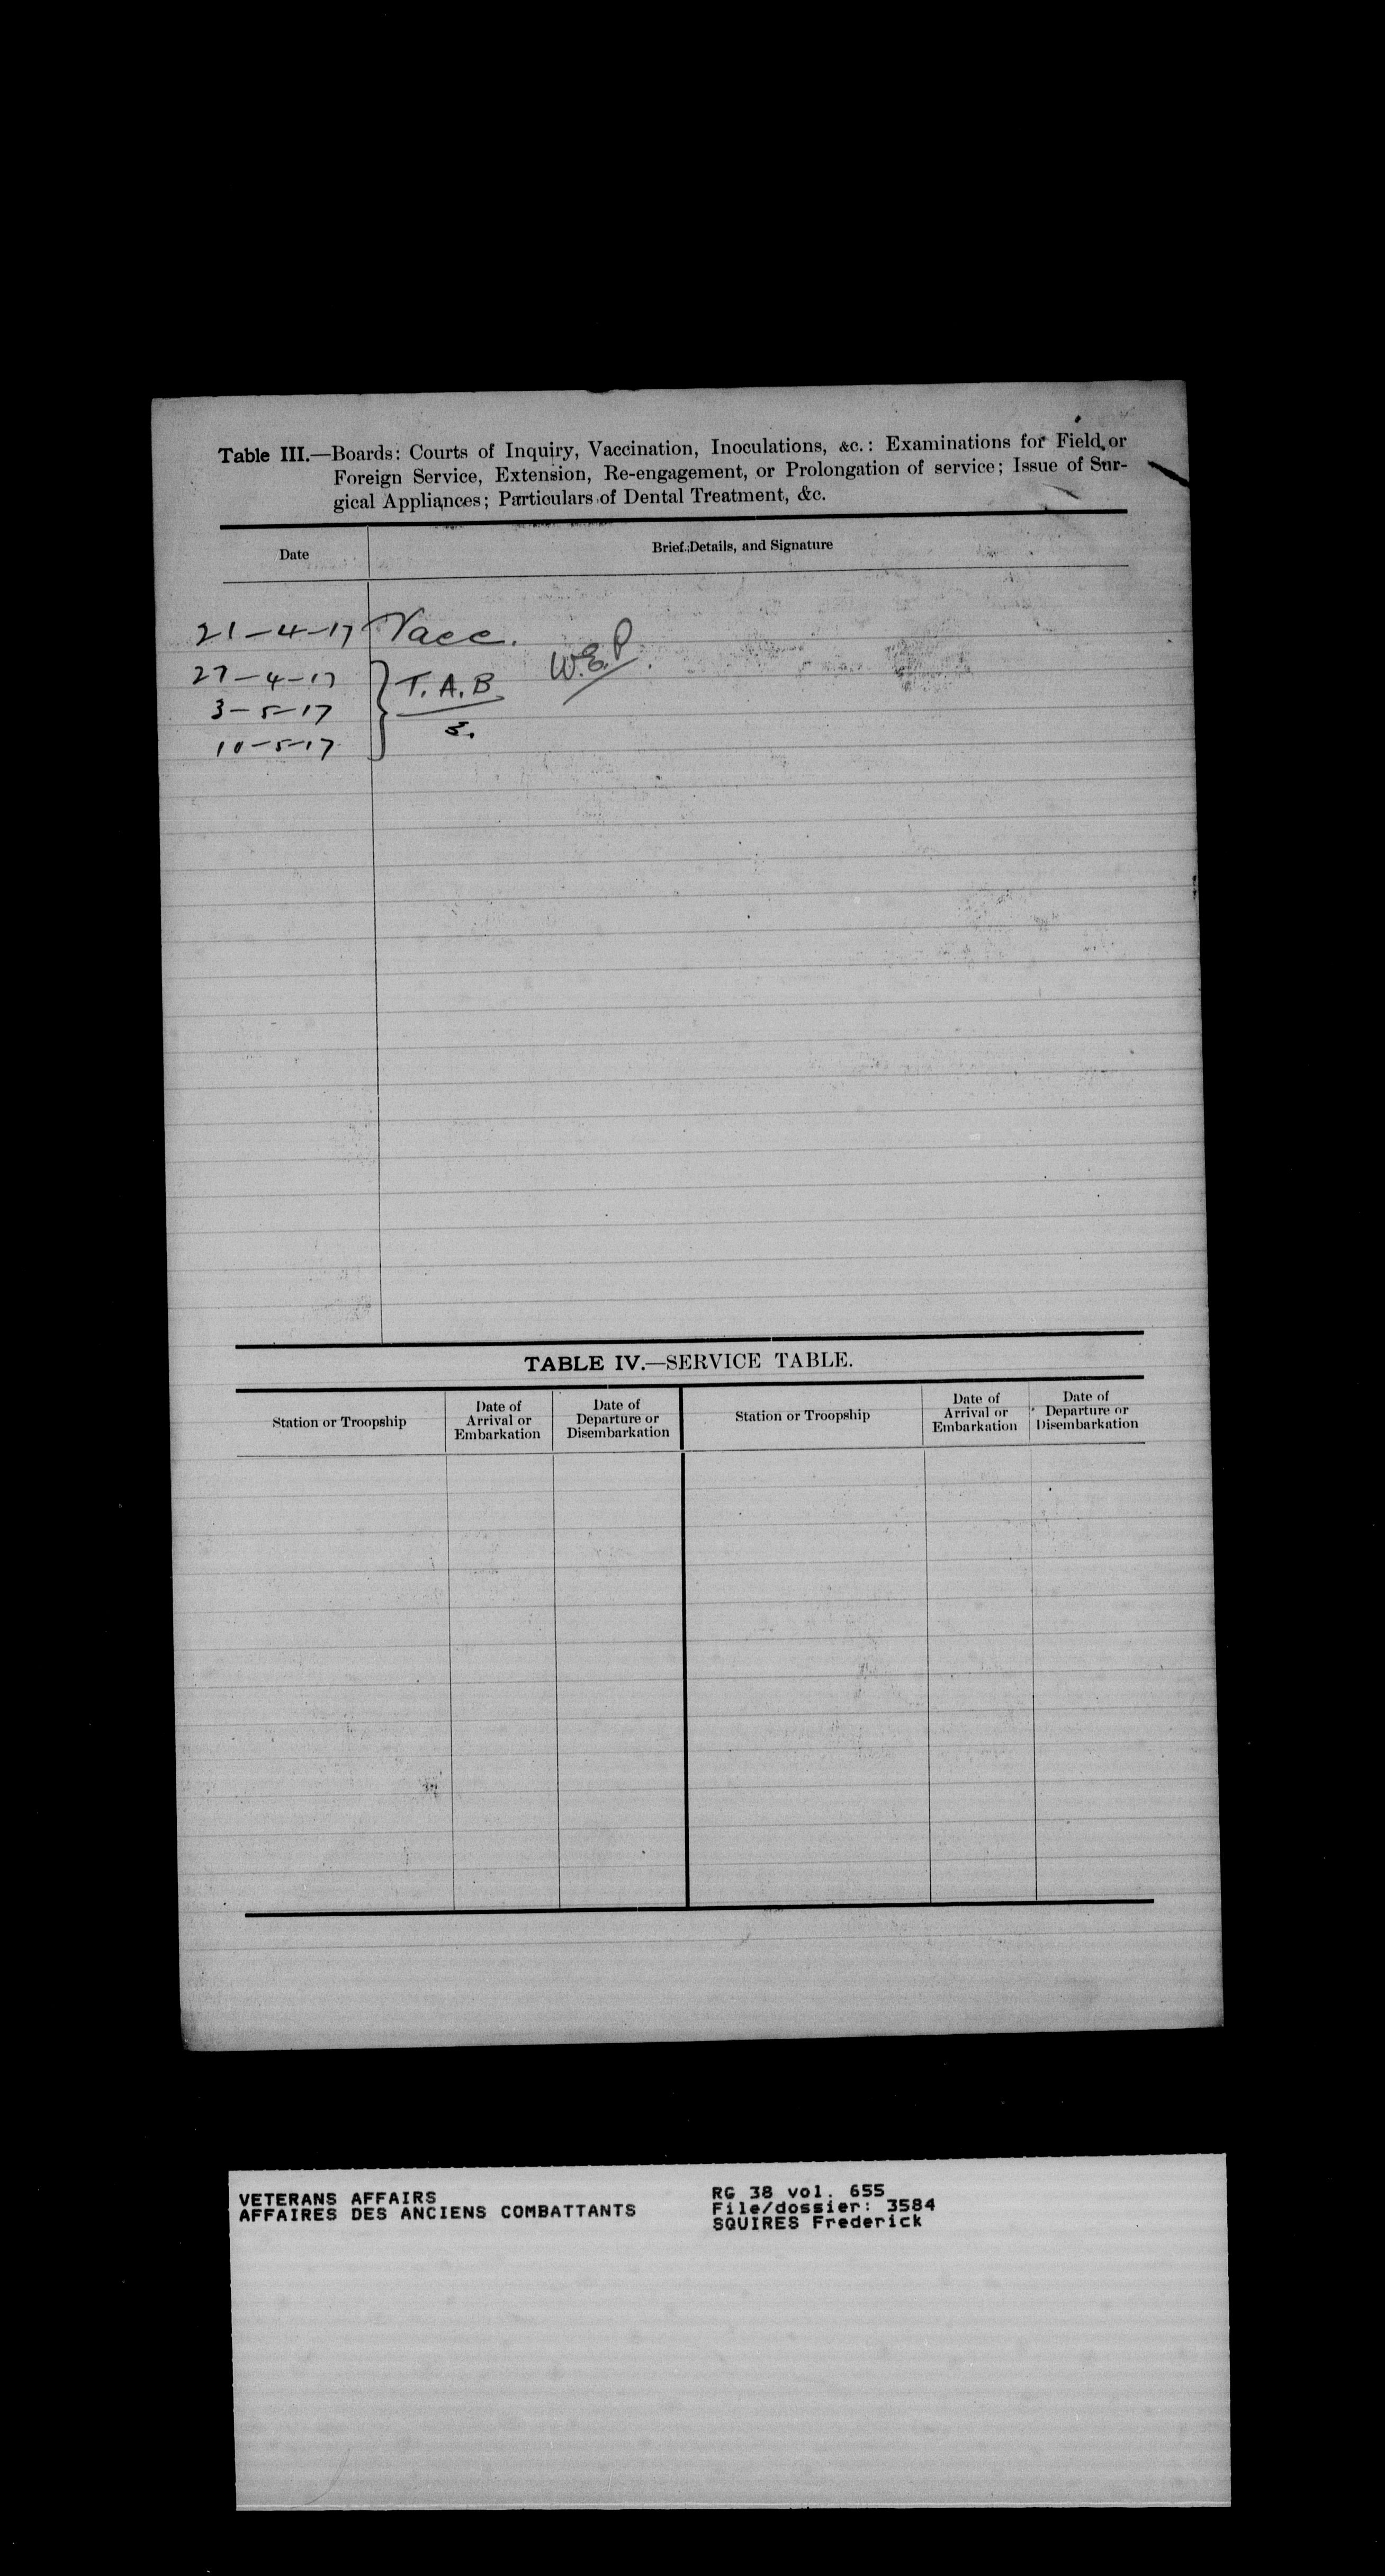 Table III.—Boards: Courts of Inquiry, Vaccination, Inoculations, &c.: Examinations for Field or
Foreign Service, Extension, Re-engagement, or Prolongation of service; Issue of Sur-
gical Appliances; Particulars of Dental Treatment, &c.
Date
Brief Details, and Signature
21-4-17 Vacc.
W.E.P.
27-4-17 T.A.B
3-5-17
10-5-17
TABLE IV.—SERVICE TABLE.
Station or Troopship
Date of
Arrival or
Embarkation
Date of
Departure or
Disembarkation
Station or Troopship
Date of
Arrival or
Embarkation
Date of
Departure or
Disembarkation
VETERANS AFFAIRS
AFFAIRES DES ANCIENS COMBATTANTS
RG 38 vol. 655
File/dossier: 3584
SQUIRES Frederick